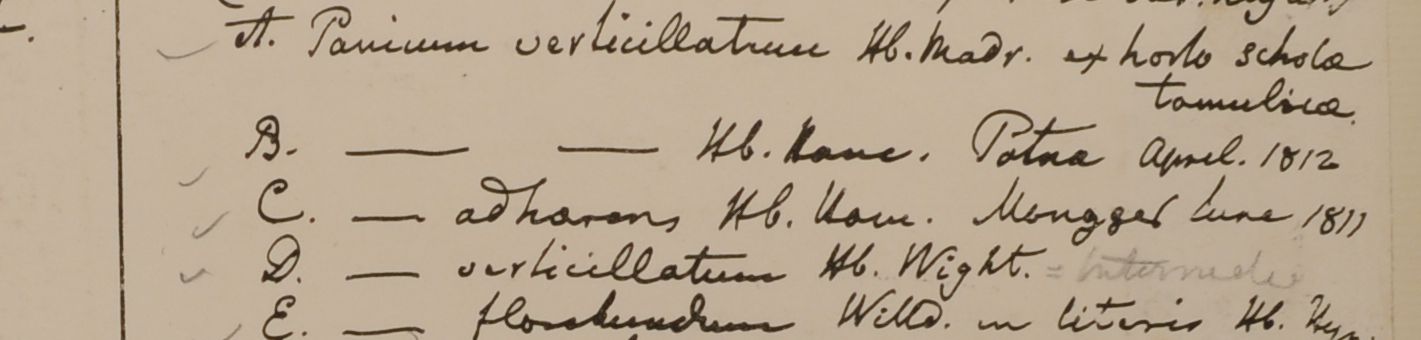 A. Panicum verticillatum Hb. Madr. ex horto scholæ
tamulicæ.
B. — — Hb. Ham. Patna April. 1812
C. — adhærens Hb. Ham. Mongger June 1811
D. — verticillatum Hb. Wight. =
E. — floribundum Willd. in literis Hb.